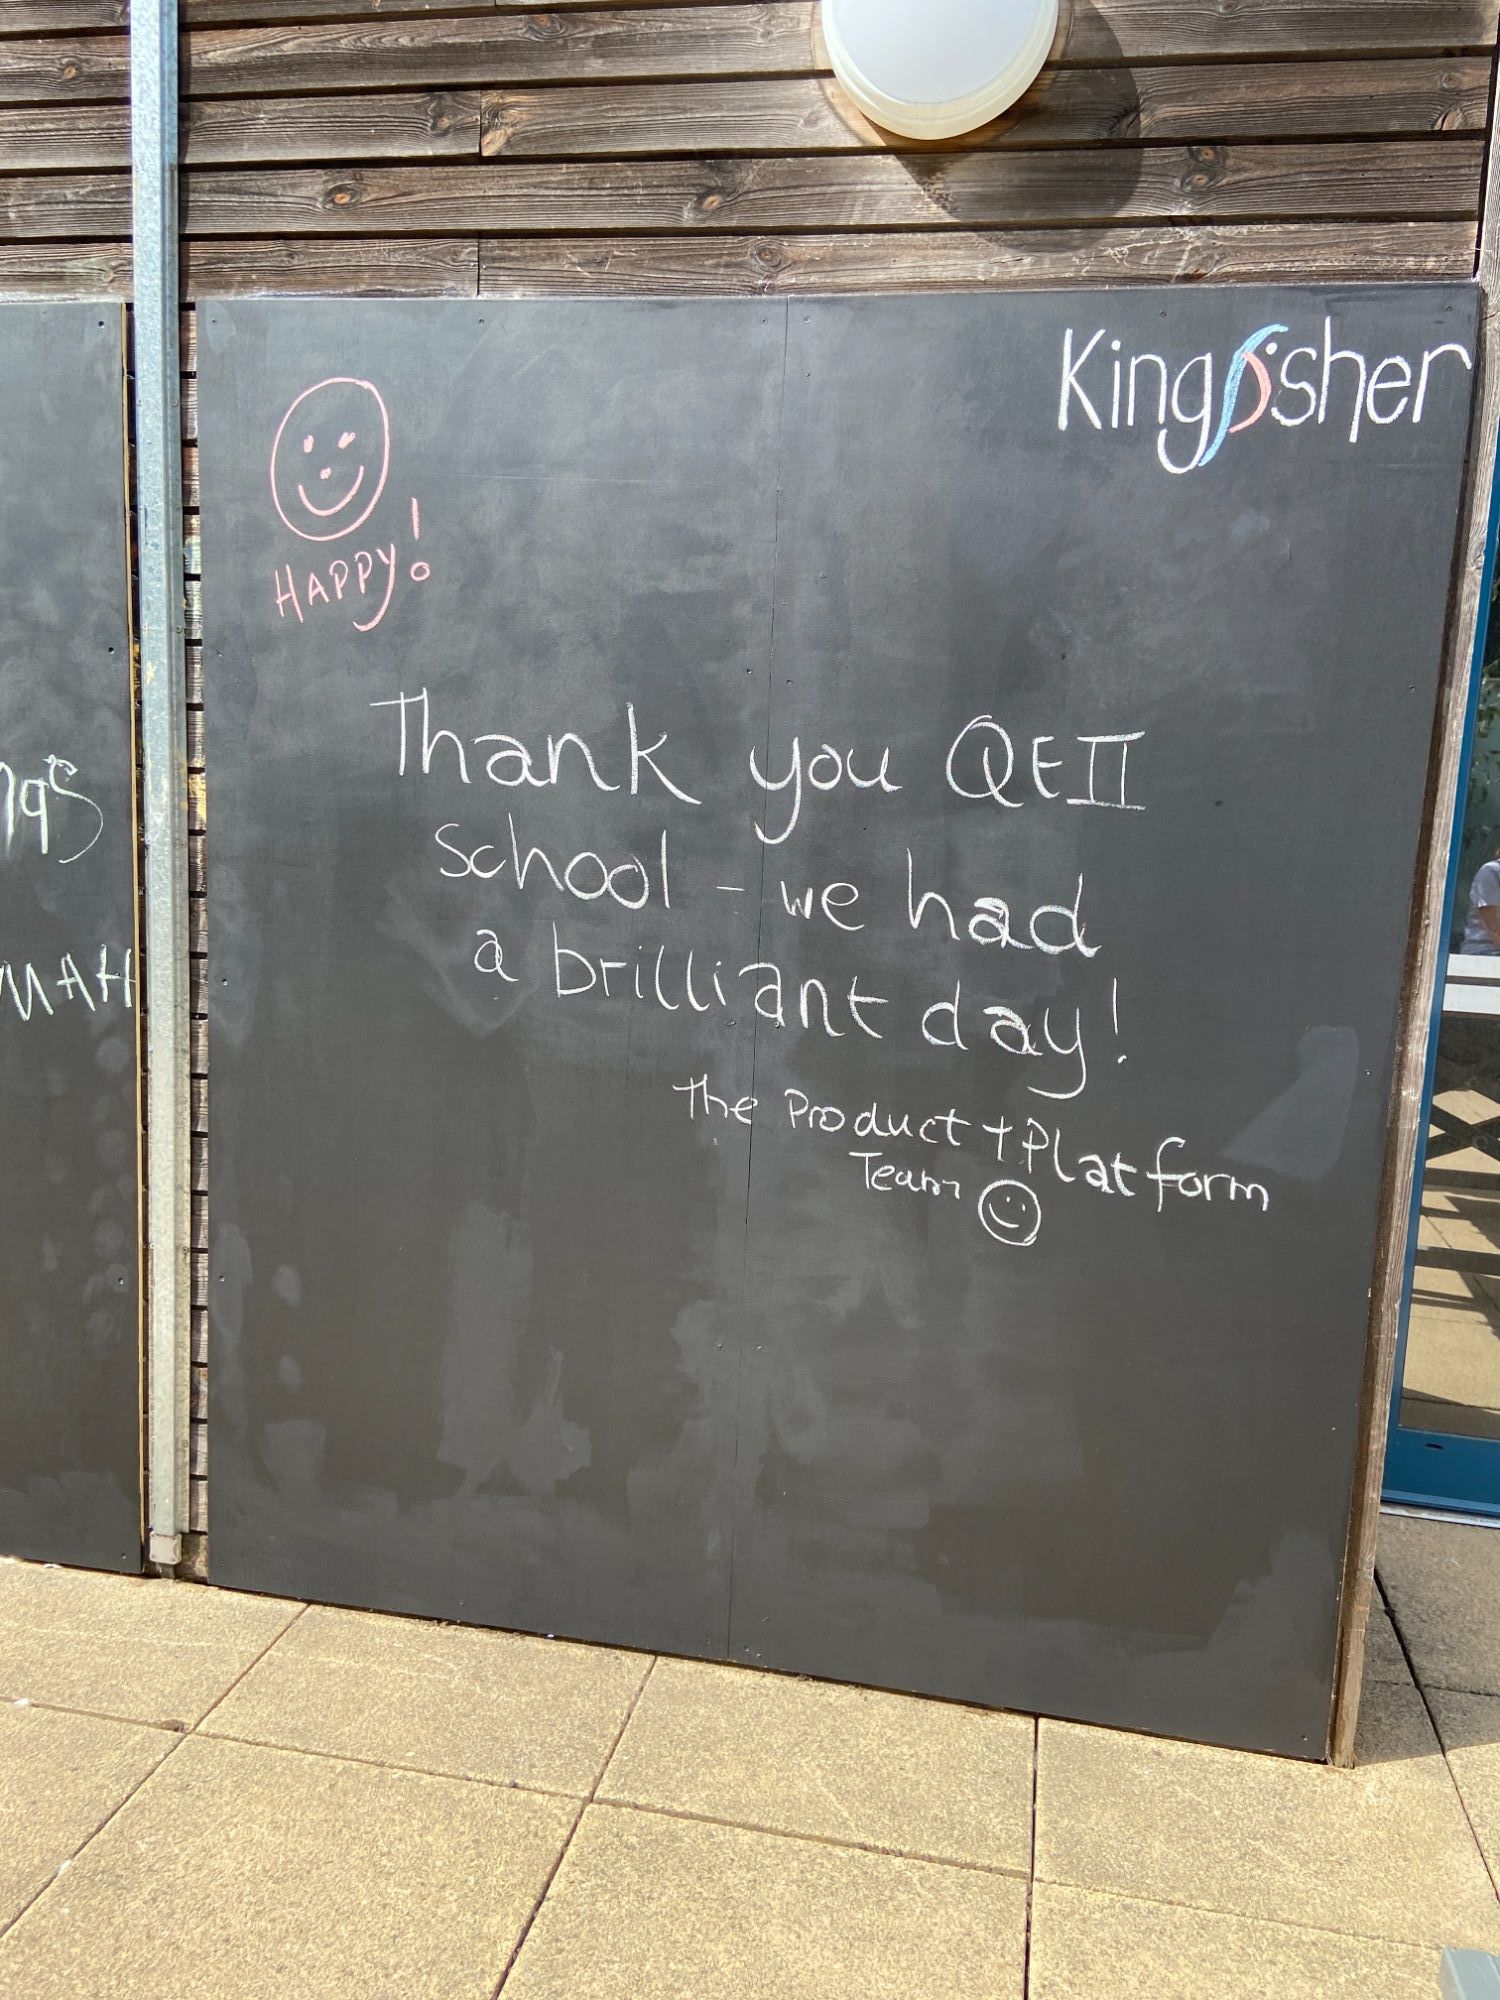 Kingfisher
HAPPY!
Thank you QEII
school - we had
a brilliant day!
The Product + Platform
Team